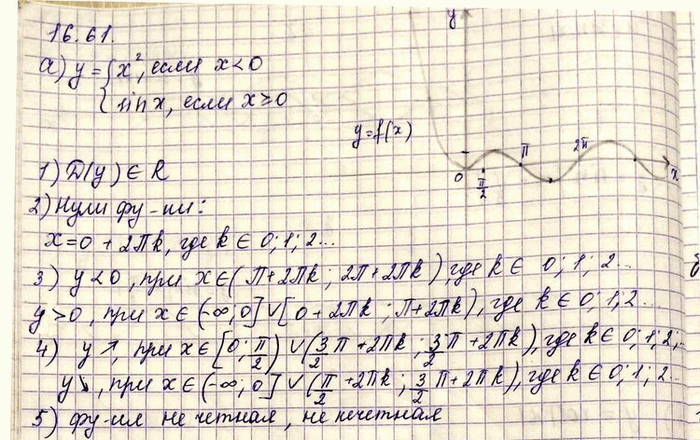 16.61.
а) y = { x², если x < 0
sin x, если x ≥ 0
y
y=f(x)
π
2π
0
π/2
x
1) D(y) ∈ R
2) Нули фу-ии:
x = 0 + 2πk, где k ∈ 0; 1; 2...
3) y < 0, при x ∈ (π + 2πk ; 2π + 2πk), где k ∈ 0; 1; 2...
y > 0, при x ∈ (-∞; 0] ∪ [0 + 2πk ; π + 2πk), где k ∈ 0; 1; 2...
4) y ↗, при x ∈ [0; π/2) ∪ (3/2 π + 2πk ; 3/2 π + 2πk), где k ∈ 0; 1; 2;..
y ↘, при x ∈ (-∞; 0] ∪ (π/2 + 2πk ; 3/2 π + 2πk), где k ∈ 0; 1; 2...
5) фу-ия не четная, не нечетная